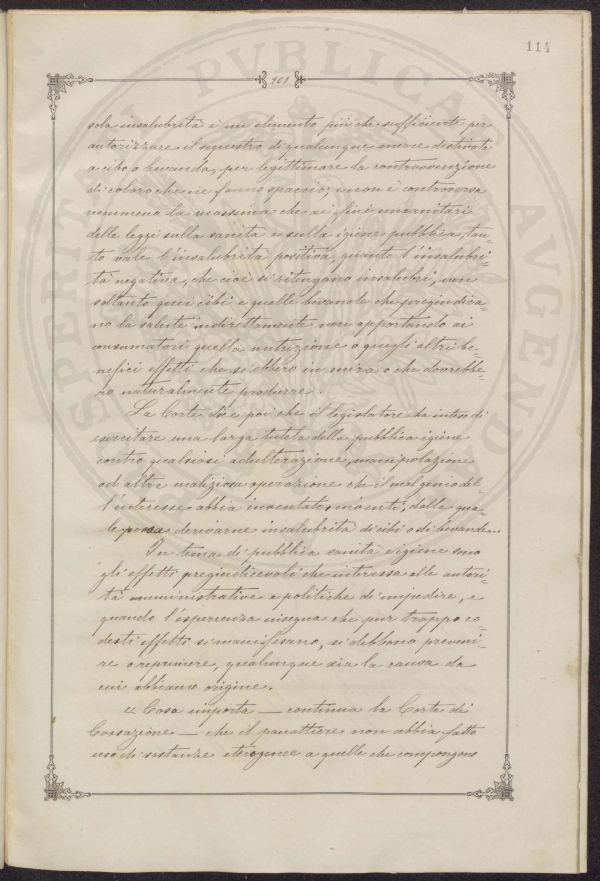 114
201
sola insalubrità è un elemento più che sufficiente per
autorizzare il sequestro di qualunque merce destinata
a cibo o bevanda, per legittimare la contravvenzione
di coloro che ne fanno spaccio; e non è controversa
nemmeno la massima che ai fini umanitari
delle leggi sulla sanità e sulla igiene pubblica, tan=
to vale l'insalubrità positiva, quanto l'insalubri=
tà negativa, che cioè si ritengono insalubri, non
soltanto quei cibi e quelle bevande che pregiudica=
no la salute indirettamente non apportando ai
consumatori quella nutrizione o quegli altri be=
nefici effetti che si ebbero in mira o che dovrebbe=
ro naturalmente produrre.
La Corte dice poi che il legislatore ha inteso di
esercitare una larga tutela della pubblica igiene
contro qualsiasi adulterazione, manipolazione
od altra maliziosa operazione che il mal genio del=
l'interesse abbia inventato o inventi, dalle qua=
le possa derivarne insalubrità di cibi o di bevande...
In tema di pubblica sanità e igiene sono
gli effetti pregiudicevoli che interessa alle autori=
tà amministrative e politiche di impedire, e
quando l'esperienza insegna che pur troppo co=
desti effetti si manifestano, si debbono preveni=
re o reprimere, qualunque sia la causa da
cui abbiano origine.
« Cosa importa — continua la Corte di
Cassazione — che il panattiere non abbia fatto
uso di sostanze eterogenee a quelle che compongono
PROSPERITATI PVBLICAE AVGENDAE